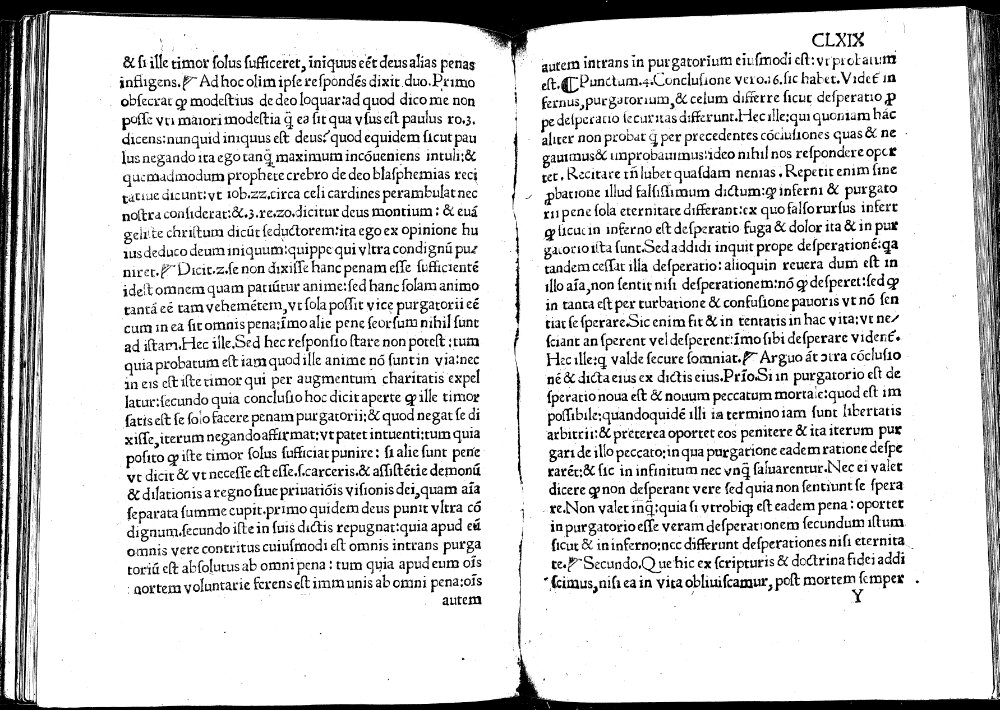 & si ille timor solus sufficeret, iniquus eēt deus alias penas
infligens. Ad hoc olim ipse respondēs dixit duo. Primo
obsecrat ꝙ modestius de deo loquar: ad quod dico me non
posse vti maiori modestia q̄ ea sit qua vsus est paulus ro.3.
dicens: nunquid iniquus est deus? quod equidem sicut pau
lus negando ita ego tanq̄ maximum incōueniens intuli: &
quemadmodum prophete crebro de deo blasphemias reci
tatiue dicunt: vt iob.zz. circa celi cardines perambulat nec
nostra considerat: &.3.re.zo. dicitur deus montium: & euā
geliste christum dicūt seductorem: ita ego ex opinione hu
ius deduco deum iniquum: quippe qui vltra condignū pu/
niret. Dicit.z. se non dixisse hanc penam esse sufficientē
idest omnem quam patiūtur anime: sed hanc solam animo
tantā eē tam vehemētem, vt sola possit vice purgatorii eē
cum in ea sit omnis pena: īmo alie pene seorsum nihil sunt
ad istam. Hec ille. Sed hec responsio stare non potest: tum
quia probatum est iam quod ille anime nō sunt in via: nec
in eis est iste timor qui per augmentum charitatis expel
latur: secundo quia conclusio hoc dicit aperte ꝙ ille timor
satis est se solo facere penam purgatorii: & quod negat se di
xisse, iterum negando affirmat: vt patet intuenti: tum quia
posito ꝙ iste timor sufficiat punire: si alie sunt pene
vt dicit & vt necesse est esse. s. carceris. & assistētie demonū
& dilationis a regno siue priuatiōis visionis dei, quam aīa
separata summe cupit. primo quidem deus punit vltra cō
dignum. secundo iste in suis dictis repugnat: quia apud eū
omnis vere contritus cuiusmodi est omnis intrans purga
toriū est absolutus ab omni pena: tum quia apud eum oīs
mortem voluntarie ferens est immunis ab omni pena: oīs
autem
CLXIX
autem intrans in purgatorium eiusmodi est: vt probatum
est. ¶ Punctum.4. Conclusione vero.16. sic habet. Videt̄ in
fernus, purgatorium, & celum differre sicut desperatio ꝓ
pe desperatio securitas differunt. Hec ille: qui quoniam hāc
aliter non probat q̄ per precedentes cōclusiones quas & ne
gauimus & improbauimus: ideo nihil nos respondere opor
tet. Recitare tn̄ lubet quasdam nenias. Repetit enim sine
ꝓbatione illud falsissimum dictum: ꝙ inferni & purgato
rii pene sola eternitate differant: ex quo falso rursus infert
ꝙ sicut in inferno est desperatio fuga & dolor ita & in pur
gatorio ista sunt. Sed addidi inquit prope desperationē: q̄a
tandem cessat illa desperatio: alioquin reuera dum est in
illo aīa, non sentit nisi desperationem: nō ꝙ desperet: sed ꝙ
in tanta est per turbatione & confusione pauoris vt nō sen
tiat se sperare. Sic enim fit & in tentatis in hac vita: vt ne/
sciant an sperent vel desperent: īmo sibi desperare vident̄.
Hec ille: q̄ valde secure somniat. Arguo āt ɔtra cōclusio
nē & dicta eius ex dictis eius. Prīo. Si in purgatorio est de
speratio noua est & nouum peccatum mortale: quod est im
possibile: quandoquidē illi in termino iam sunt libertatis
arbitrii: & preterea oportet eos penitere & ita iterum pur
gari de illo peccato: in qua purgatione eadem ratione despe
rarēt: & sic in infinitum nec vnq̄ saluarentur. Nec ei valet
dicere ꝙ non desperant vere sed quia non sentiunt se spera
re. Non valet inq̄: quia si vtrobiqꝫ est eadem pena: oportet
in purgatorio esse veram desperationem secundum istum
sicut & in inferno: nec differunt desperationes nisi eternita
te. Secundo. Que hic ex scripturis & doctrina fidei addi
scimus, nisi ea in vita obliuiscamur, post mortem semper
Y